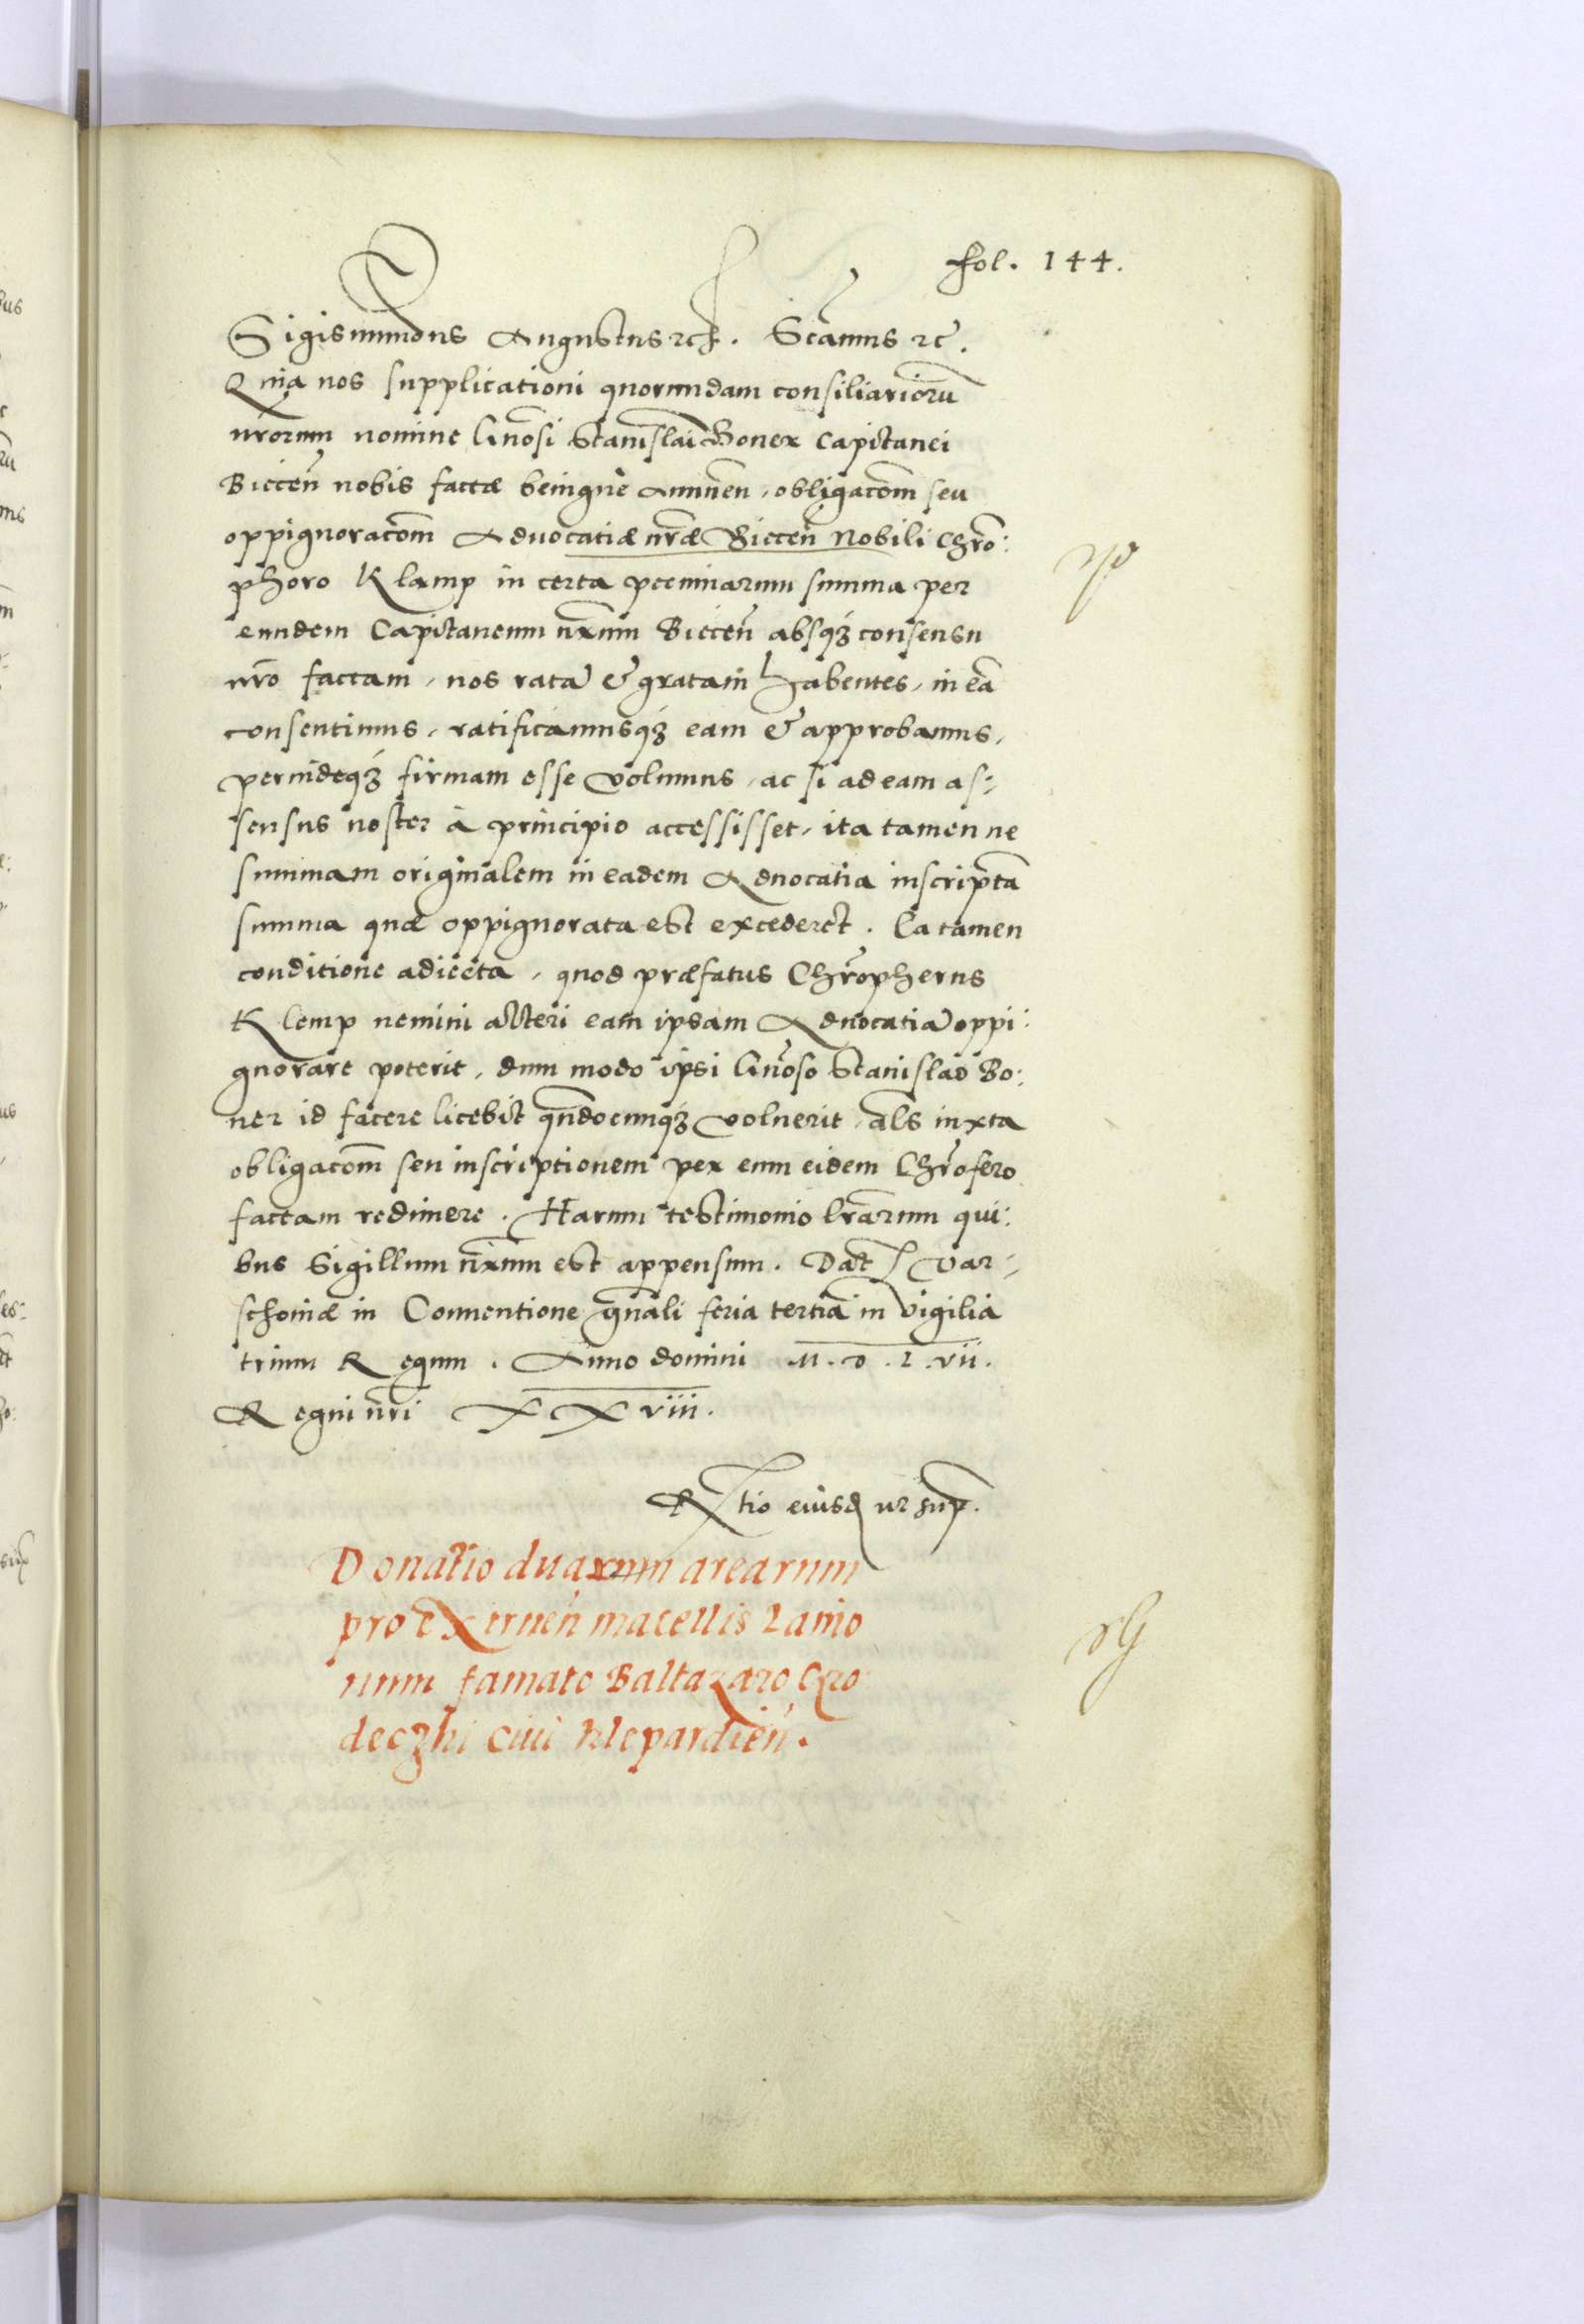 fol. 144.
Sigismundus Augustus etc. Scämus etc.
Quia nos supplicationi quorundam consiliariorū
nr̄orum nomine Gn̄osi Stanislai Boner Capitanei
Biecen̄ nobis factæ benigne Annuen, obligacōm seu
oppignoracōm Advocatiæ nr̄æ Biecen̄ Nobili Chrō:
phoro Klamp in certa pecuniarum summa per
eundem Capitaneum nr̄um Biecen̄ absq3 consensu
nr̄o factam, nos ratā & gratam habentes, in eā
consentimus, ratificamusq3 eam & approbamus,
perindeq3 firmam esse volumus, ac si ad eam as:
sensus noster à principio accessisset, ita tamen ne
summam originalem in eadem Advocatia inscriptā
summa quæ oppignorata est excederet. Ea tamen
conditione adiecta, quod præfatus Chr̄opherus
Klemp nemini alteri eam ipsam Advocatiā oppi:
gnorare poterit, dum modo ipsi Gn̄oso Stanislao Bo:
ner id facere licebit qn̄documq3 voluerit, als iuxta
obligacōm seu inscriptionem per eum eidem Chr̄ofero
factam redimere. Harum testimonio lr̄arum qui:
bus Sigillum nr̄um est appensum. Dat̄ Var:
schoviæ in Conventione gn̄ali feria tertia in vigilia
trium Regum. Anno domini M.D.L.vii.
Regni nr̄i XXviii.
Rl̄tio eiusd ut sup.
Donatio duarum arearum
pro extruen̄ macellis Lanio
num famato Baltazaro Gro
deczki Civi Klepardien̄.